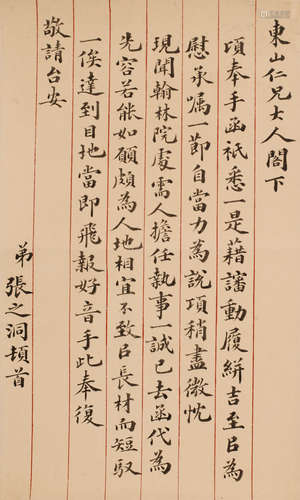 東山仁兄大人閣下
頃奉手函祇悉一是藉讅動履絣吉至㠯為
慰承嘱一節自當力為說項稍盡微忱
現聞翰林院處需人擔任執事一誠已去函代為
先容若能如願頗為人地相宜不致㠯長材而短馭
一俟達到目地當即飛報好音手此奉復
敬請台安
弟張之洞頓首